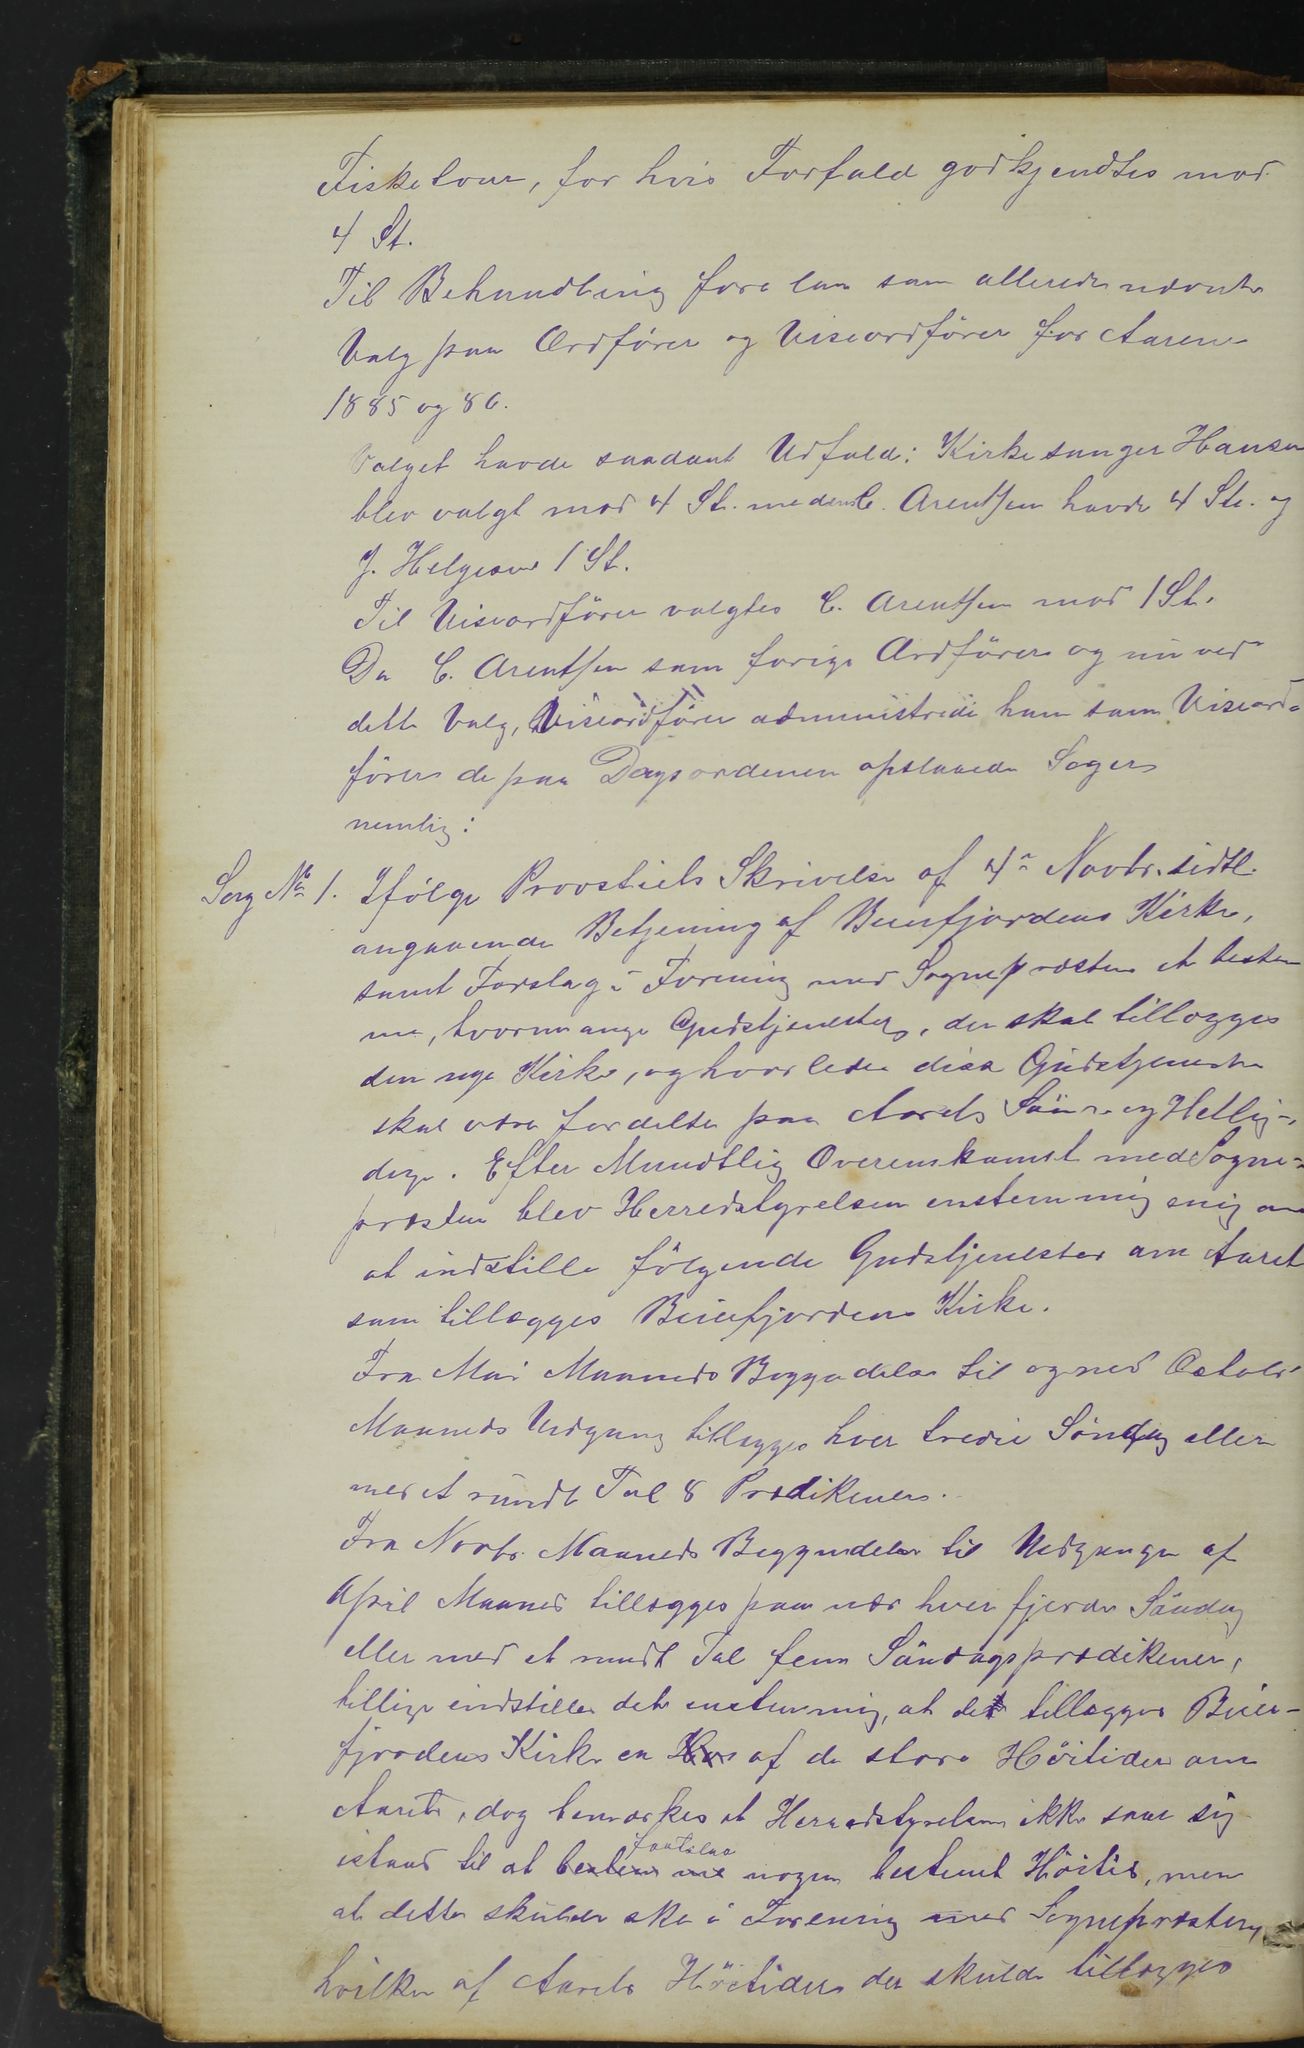 Fisketour, for hvis Forfald godkjendtes mod
4 St.
Til Behandling forelaa som allerede nævnt
Valg paa Ordfører og Viseordfører for Aarene
1885 og 86.
Valget havde saadant Udfald: Kirkesanger Hansen
blev valgt med 4 St. medens C. Arentsen havde 4 St. og
J. Helgesen 1 St.
Til Viseordfører valgtes C. Arentsen med 1 St.
Da C. Arentsen som forige Ordfører og nu ved
dette Valg, Viseordfører administrede han som Viseord-
fører de paa Dagsordenen opslaaede Sager
nemlig:
Sag No 1. Ifølge Provstiets Skrivelse af 4de Novbr. sidtl.
angaaende Betjening af Beierfjordens Kirke,
samt Forslag i Forening med Sognepræsten at bestem
me, hvormange Gudstjenester, der skal tillægges
den nye Kirke, og hvorledes disse Gudstjenester
skal være fordelte paa Aarets Søn- og Hellig-
dage. Efter Mundtlig Overenskomst med Sogne-
præsten blev Herredstyrelsen enstemmig enig om
at indstille følgende Gudstjenester om Aaret
som tillægges Beierfjordens Kirke.
Fra Mai Maaneds Begyndelse til og med Octobr
Maaneds Udgang tillægges hver tredie Søndag eller
med et rundt Tal 8 Prædikener.
Fra Novbr. Maaneds Begyndelse til Udgangen af
April Maaned tillægges paa nær hver fjerde Søndag
eller med et rundt Tal fem Søndagsprædikener,
tillige indstilles det enstemmig, at det tillægges Beier-
fjordens Kirke en af de store Høitider om
Aaret, dog bemærkes at Herredstyrelsen ikke saae sig
istand til at bestemme fastslaa nogen bestemt Høitid, men
at dette skulde ske i Forening med Sognepræsten,
hvilken af Aarets Høitider der skulde tillægges